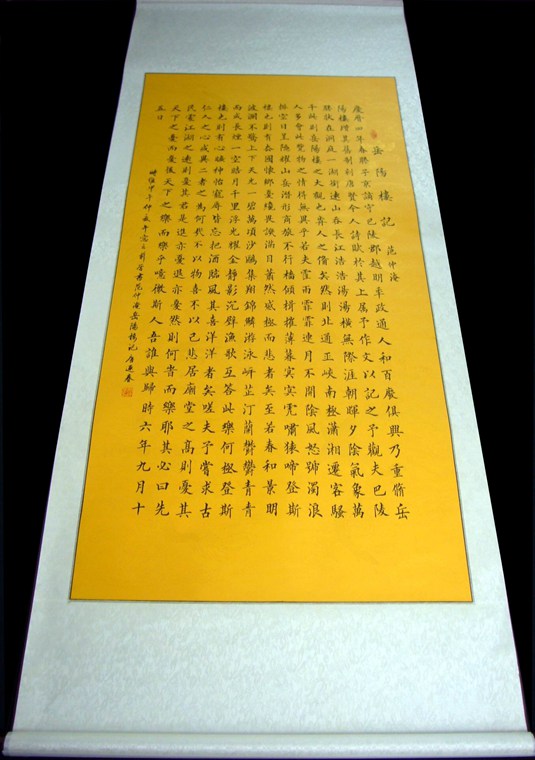 岳陽樓記 范中淹
慶曆四年春滕子京謫守巴陵郡越明年政通人和百廢俱興乃重脩岳
陽樓增其舊制刻唐賢今人詩賦於其上属予作文以記之予觀夫巴陵
勝狀在洞庭一湖銜遠山吞長江浩浩湯湯橫無際涯朝暉夕陰氣象萬
千此則岳陽樓之大觀也前人之備矣然則北通巫峽南極瀟湘遷客騷
人多會此覽物之情得無異乎若夫霪雨霏霏連月不開陰風怒號濁浪
排空日星隱耀山岳潛形商旅不行檣傾楫摧薄暮冥冥虎嘯猿啼登斯
樓也則有去國懷鄉憂讒畏譏滿目蕭然感極而悲者矣至若春和景明
波瀾不驚上下天光一碧萬頃沙鷗集翔錦鱗游泳岸芷汀蘭鬱鬱青青
而或長煙一空皓月千里浮光耀金靜影沉璧漁歌互答此樂何極登斯
樓也則有心曠神怡寵辱皆忘把酒臨風其喜洋洋者矣嗟夫予嘗求古
仁人之心或異二者之為何哉不以物喜不以己悲居廟堂之高則憂其
民處江湖之遠則憂其君是進亦憂退亦憂然則何時而樂耶其必曰先
天下之憂而憂後天下之樂而樂乎噫微斯人吾誰與歸時六年九月十
五日
書范仲淹岳陽樓記 唐運春